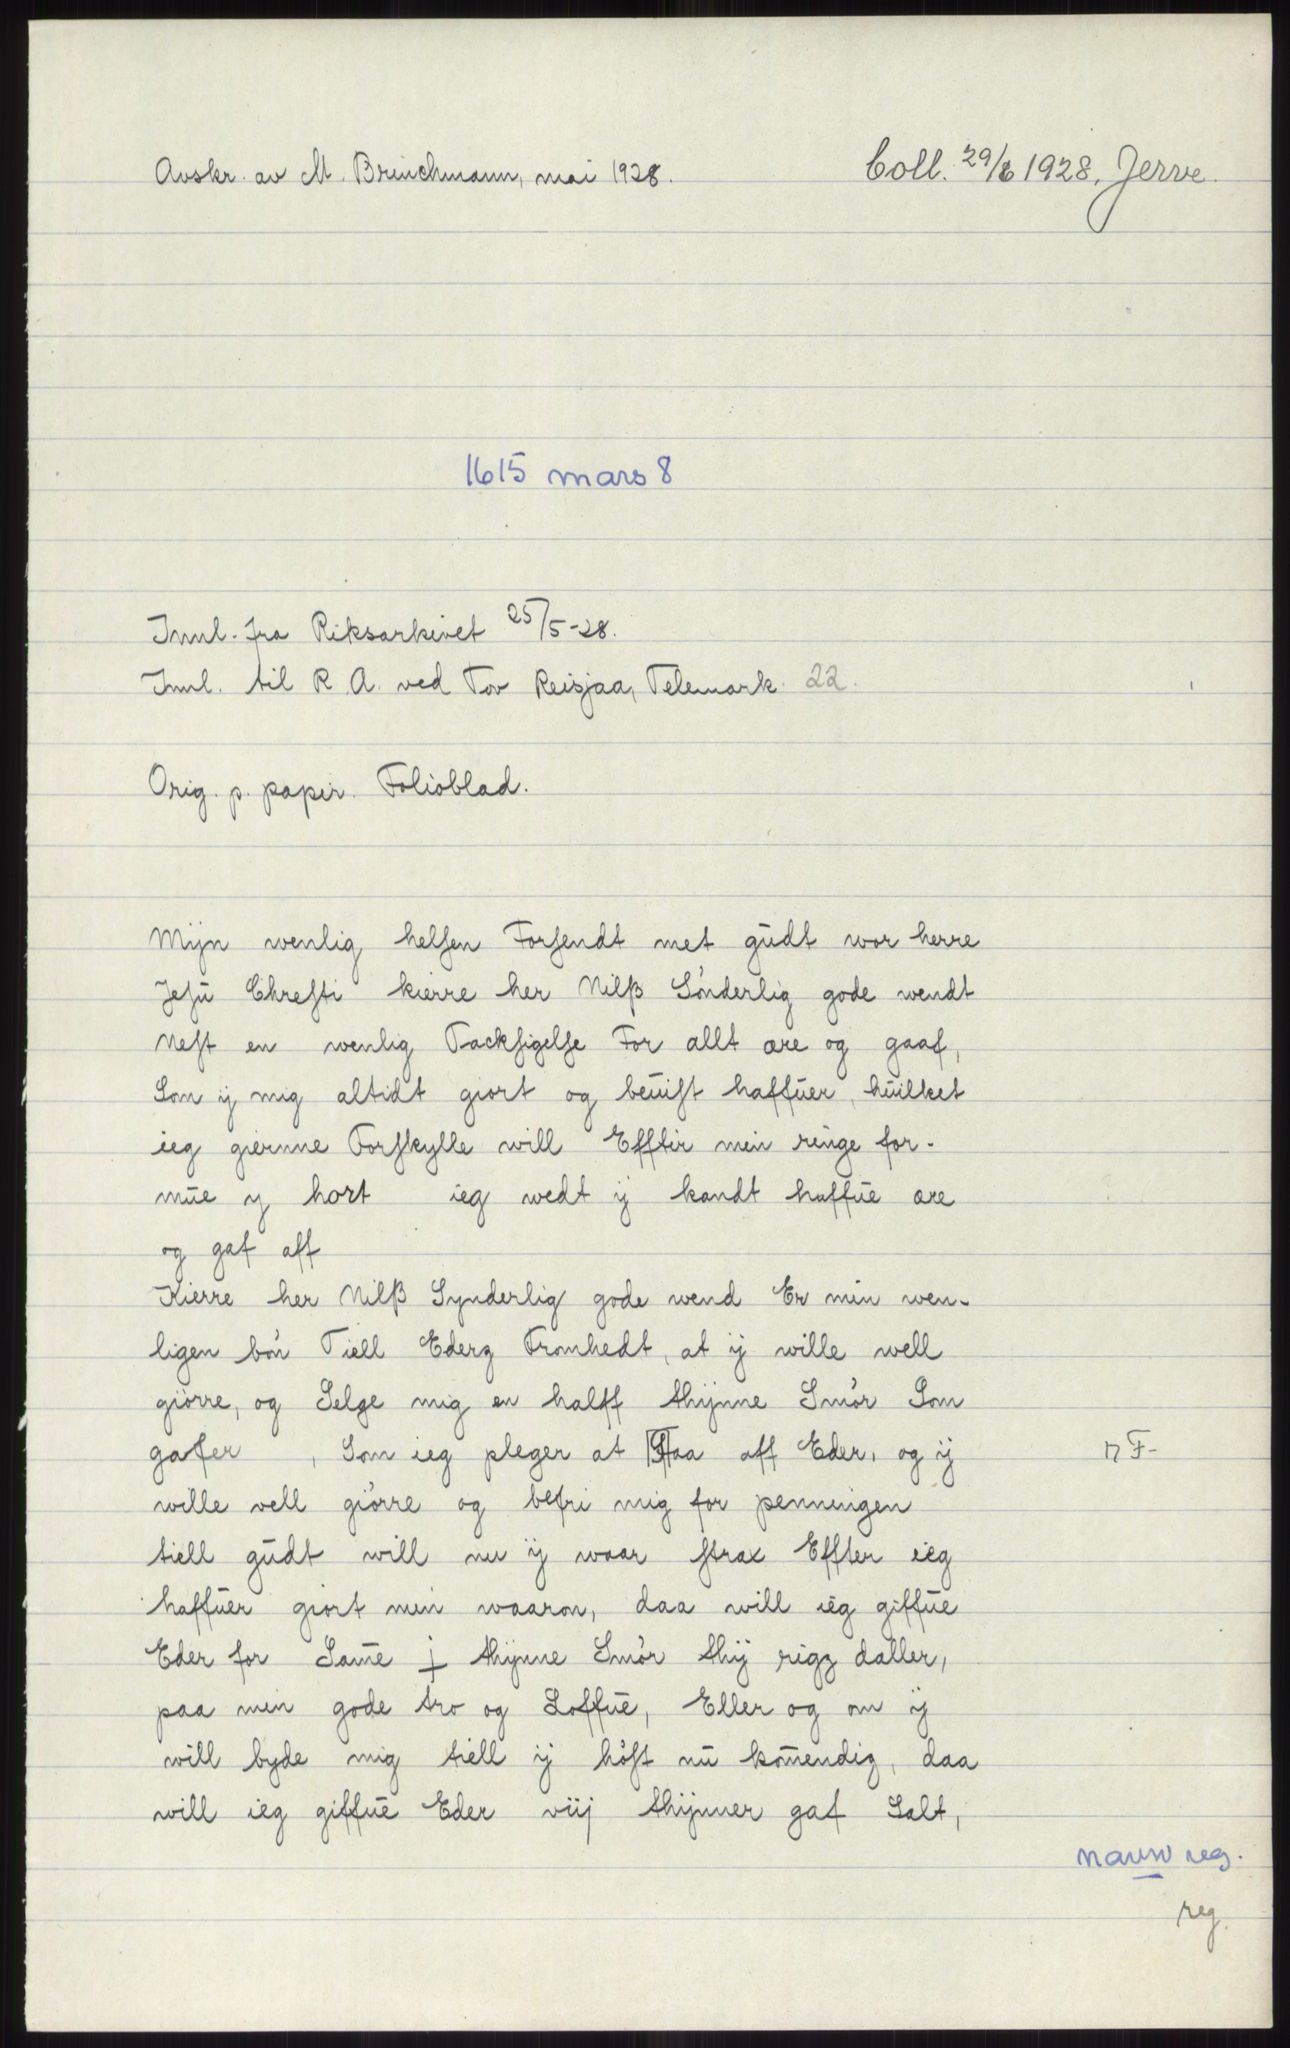 Avskr. av M. Brinchmann, mai 1928.
Coll. 29/8 1928, Jerve.
1615 mars 8
Innl. fra Riksarkivet 25/5-28.
Innl. til R. A. ved Tov Reisjaa, Telemark. 22.
Orig. p. papir. Folioblad.
Mijn wenlig helsen Forsendt met gudt wor herre
Jesu Chresti kierre her Nilß Sönderlig gode wendt
Nest en wenlig Tacksigelse For allt ære og gaaf,
Som ij mig altidt giort og beuist haffuer, huilket
ieg giernne Forskylle will Effter min ringe for-
mue y hort ieg wedt ij kandt haffue ære
og gaf aff
Kierre her Nilß Synderlig gode wend Er min wen-
ligen bön Tiell Eders Fromhedt, at ij wille well
giörre, og Selge mig en halff thijnne Smör Som
gafer , Som ieg pleger at Faa aff Eder, og ij
⊓ F-
wille vell giörre og befri mig for penningen
tiell gudt will nu ij waar strax Effter ieg
haffuer giort min waaron, daa will ieg giffue
Eder for Same j thijnne Smör thij rigz daller,
paa min gode tro og Loffue, Eller og om ij
will byde mig tiell ij höst nu komendiz, daa
will ieg giffue Eder viij thijnner gaf Salt,
navne reg.
reg.